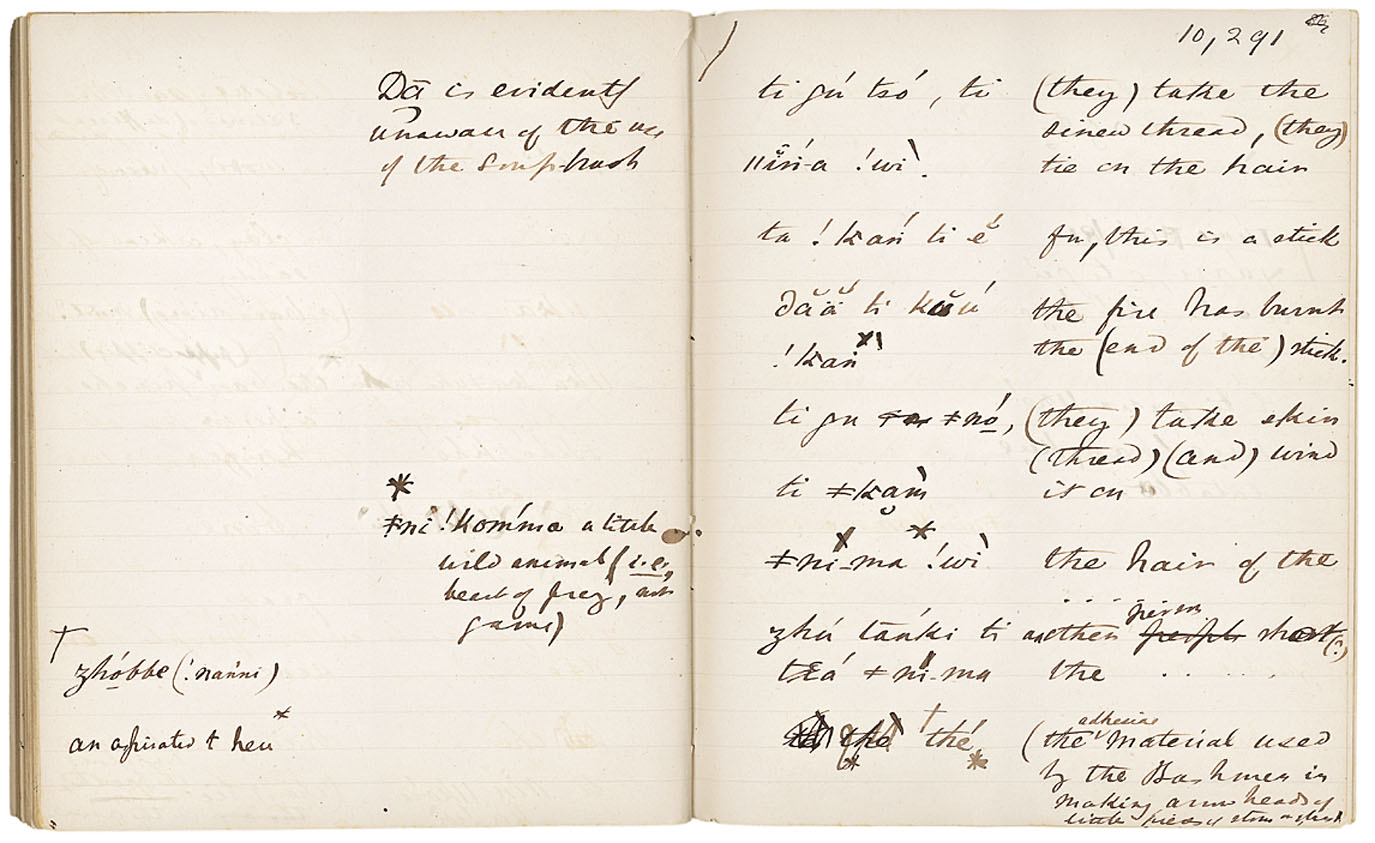 Dā is evidently
unaware of the use
of the Soup-brush
*
ǂni !kom'ma a little
wild animal (i.e.,
beast of prey, not
game)
†
zhóbbe (!nanni)
an aspirated t here *
10,291
ti gú tsó, ti (they) take the
sinew thread, (they)
ǁṅ-a !wì. tie on the hair
ta !kań ti é for, this is a stick
dăă ti kŭú the fire has burnt
!kań the (end of the) stick.
ti gu ǂnó, (they) take skin
(thread) (and) wind
ti ǂkam̀ it on
ǂni-ma !wì the hair of the
. . . . .
zhú tańki ti another person short (?)
tsá ǂni-ma the . . . . . .
thé (the adhesive material used
by the Bushmen in
making arrowheads of
little pieces of stone or glass